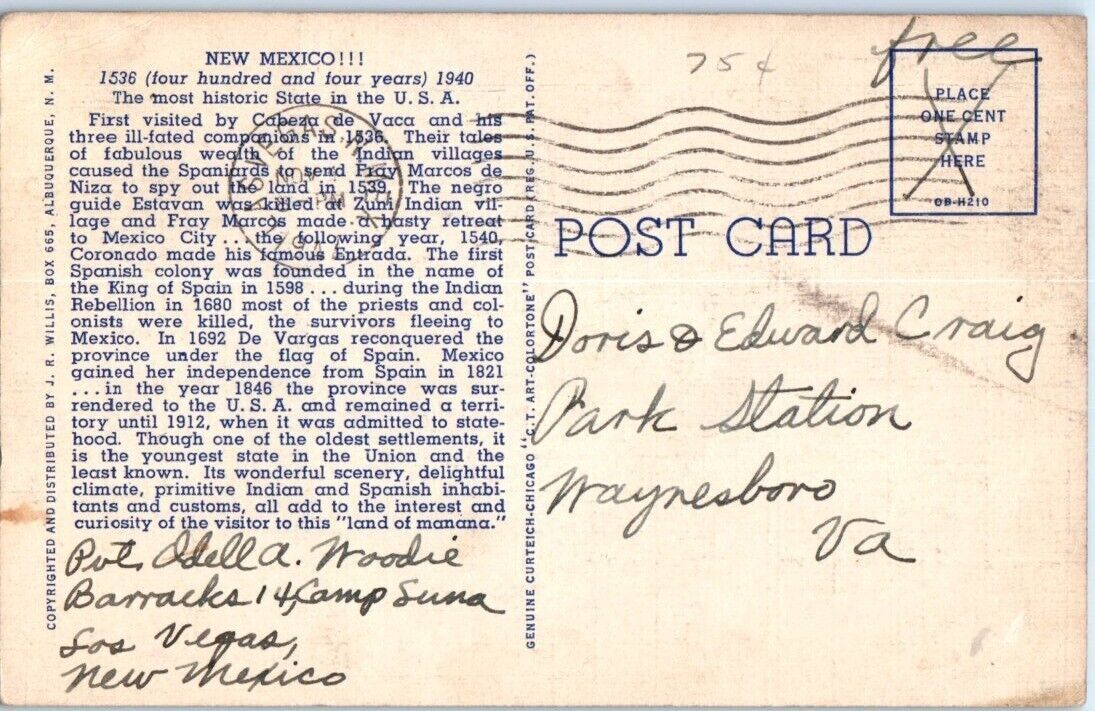 NEW MEXICO!!!
1536 (four hundred and four years) 1940
The most historic State in the U. S. A.
First visited by Cabeza de Vaca and his
three ill-fated companions in 1536. Their tales
of fabulous wealth of the Indian villages
caused the Spaniards to send Fray Marcos de
Niza to spy out the land in 1539. The negro
guide Estavan was killed at Zuni Indian vil-
lage and Fray Marcos made a hasty retreat
to Mexico City . . . the following year, 1540,
Coronado made his famous Entrada. The first
Spanish colony was founded in the name of
the King of Spain in 1598 . . . during the Indian
Rebellion in 1680 most of the priests and col-
onists were killed, the survivors fleeing to
Mexico. In 1692 De Vargas reconquered the
province under the flag of Spain. Mexico
gained her independence from Spain in 1821
. . . in the year 1846 the province was sur-
rendered to the U. S. A. and remained a terri-
tory until 1912, when it was admitted to state-
hood. Though one of the oldest settlements, it
is the youngest state in the Union and the
least known. Its wonderful scenery, delightful
climate, primitive Indian and Spanish inhabi-
tants and customs, all add to the interest and
curiosity of the visitor to this "land of manana."
Pvt. Odell A. Woodie
Barracks 14, Camp Suna
Los Vegas,
New Mexico
COPYRIGHTED AND DISTRIBUTED BY J. R. WILLIS, BOX 665, ALBUQUERQUE, N. M.
GENUINE CURTEICH-CHICAGO "C. T. ART-COLORTONE" POST CARD (REG. U. S. PAT. OFF.)
VEGAS, N.
PM
75¢
free
PLACE
ONE CENT
STAMP
HERE
OB-H210
POST CARD
Doris & Edward Craig
Park Station
Waynesboro
Va